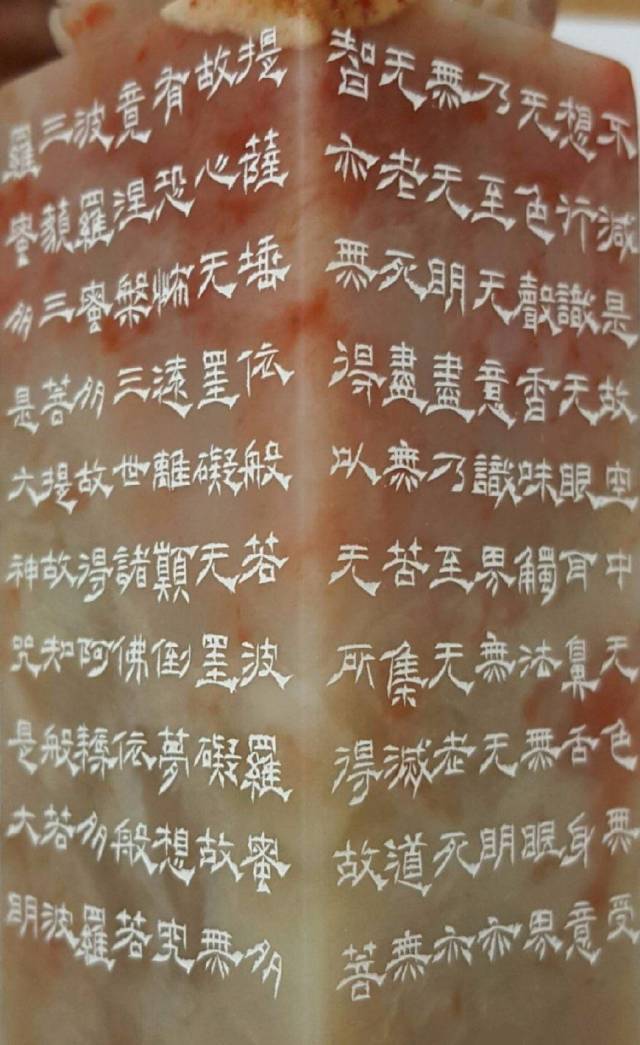 不減是故空中无色無受
想行識无眼耳鼻舌身意
无色聲香味觸法無眼界
乃至无意識界無无明亦
無无明盡乃至无老死亦
无老死盡無苦集滅道無
智亦無得以无所得故菩
提薩埵依般若波羅蜜多
故心无罣礙无罣礙故無
有恐怖遠離顛倒夢想究
竟涅槃三世諸佛依般若
波羅蜜多故得阿耨多羅
三藐三菩提故知般若波
羅蜜多是大神咒是大明